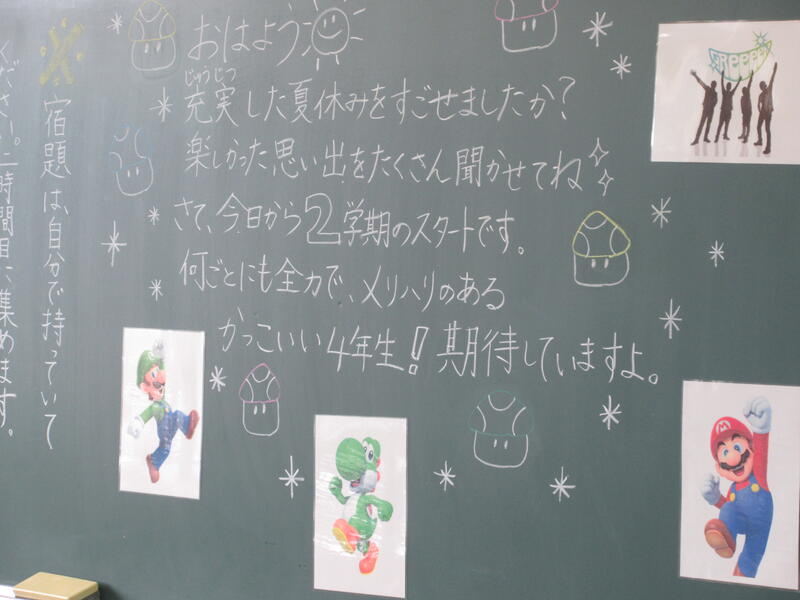 おはよう
じゅうじつ
充実した夏休みをすごせましたか？
楽しかった思い出をたくさん聞かせてね
さて、今日から2学期のスタートです。
何ごとにも全力で、メリハリのある
かっこいい4年生！期待していますよ。
※宿題は、自分で持っていて
ください。二時間目に集めます。
GReeeeN